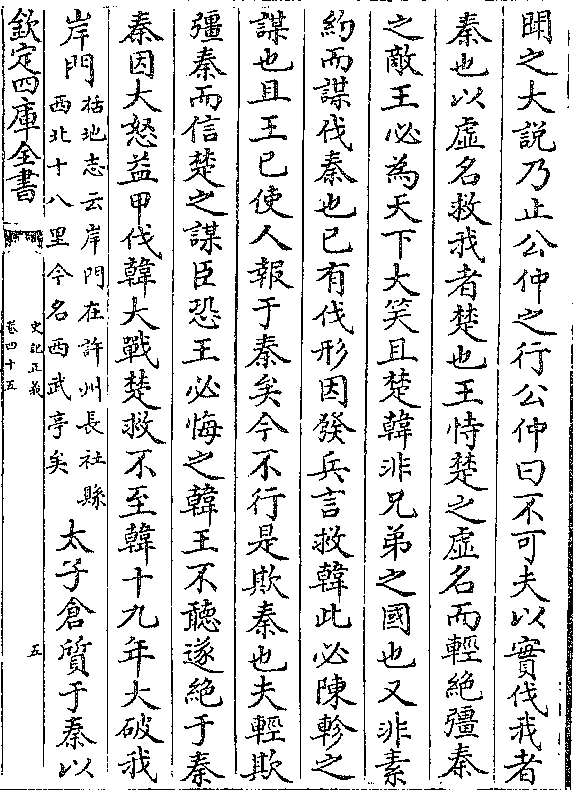 聞之大説乃止公仲之行公仲曰不可夫以實伐我者
秦也以虛名救我者楚也王恃楚之虛名而輕絶彊秦
之敵王必為天下大笑且楚韓非兄弟之國也又非素
約而謀伐秦也已有伐形因發兵言救韓此必陳軫之
謀也且王已使人報于秦矣今不行是欺秦也夫輕欺
彊秦而信楚之謀臣恐王必悔之韓王不聽遂絶于秦
秦因大怒益甲伐韓大戰楚救不至韓十九年大破我
岸門
括地志云岸門在許州長社縣
西北十八里今名西武亭矣
太子倉質于秦以
欽定四庫全書
史記正義
卷四十五
五